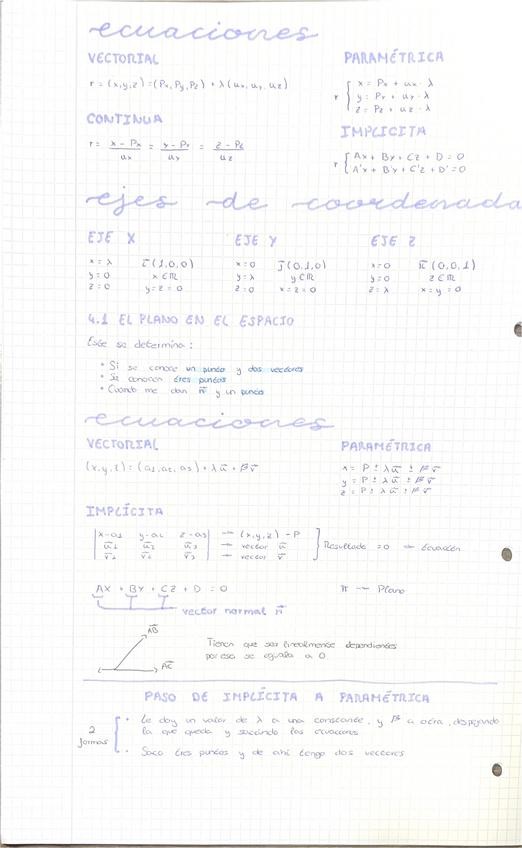 ecuaciones
VECTORIAL
r = (x,y,z) = (Px, Py, Pz) + λ(ux, uy, uz)
PARAMÉTRICA
r { x = Px + ux · λ
y = Py + uy · λ
z = Pz + uz · λ
CONTINUA
r = x - Px / ux = y - Py / uy = z - Pz / uz
IMPLÍCITA
r { Ax + By + Cz + D = 0
A'x + B'y + C'z + D' = 0
ejes de coordenada
EJE X
x = λ
y = 0
z = 0
i(1,0,0)
x ∈ ℝ
y = z = 0
EJE Y
x = 0
y = λ
z = 0
j(0,1,0)
y ∈ ℝ
x = z = 0
EJE Z
x = 0
y = 0
z = λ
k(0,0,1)
z ∈ ℝ
x = y = 0
4.1 EL PLANO EN EL ESPACIO
Este se determina:
• Si se conoce un punto y dos vectores
• Se conocen tres puntos
• Cuando me dan n⃗ y un punto
ecuaciones
VECTORIAL
(x,y,z) = (a1, a2, a3) + λu⃗ + βv⃗
PARAMÉTRICA
x = P ± λu⃗ ± βv⃗
y = P ± λu⃗ ± βv⃗
z = P ± λu⃗ ± βv⃗
IMPLÍCITA
| x-a1 y-a2 z-a3 | → (x,y,z) - P
| u⃗1 u⃗2 u⃗3 | → vector u⃗
| v⃗1 v⃗2 v⃗3 | → vector v⃗
] Resultado = 0 → Ecuación
AX + BY + CZ + D = 0
π → Plano
vector normal n⃗
AB⃗
AC⃗
Tienen que ser linealmente dependientes
por eso se iguala a 0
PASO DE IMPLÍCITA A PARAMÉTRICA
2 formas
• Le doy un valor de λ a una constante, y β a otra, despejando
la que queda y sacando las ecuaciones
• Saco tres puntos y de ahí tengo dos vectores